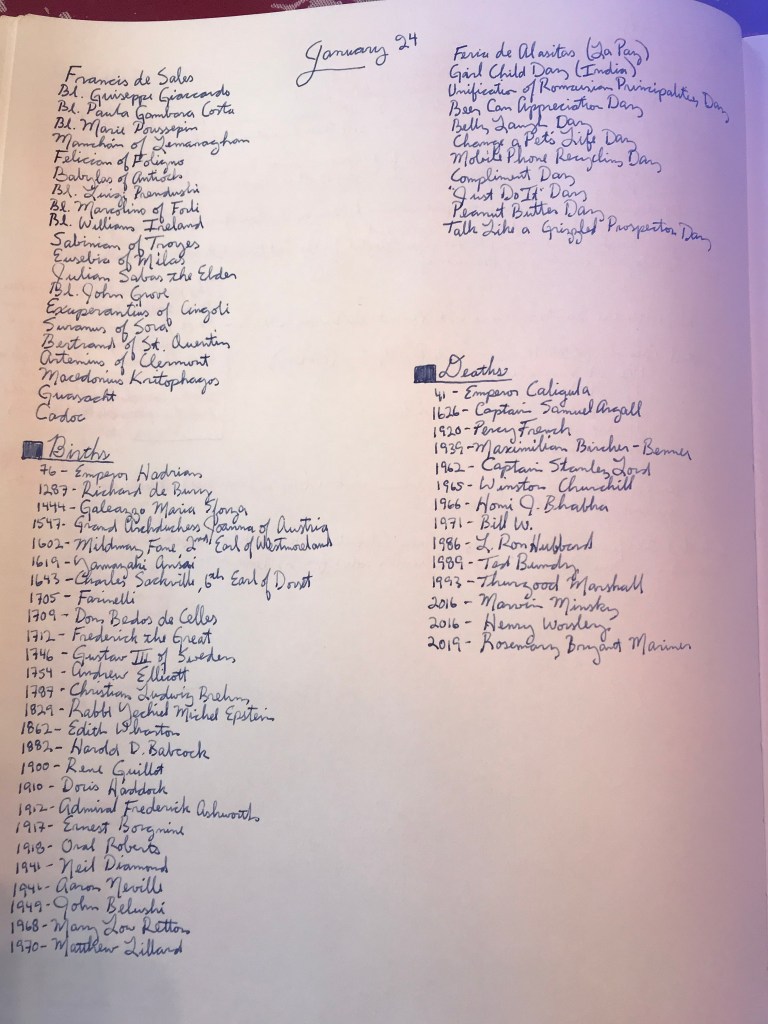 January 24
Francis de Sales
Bl. Guiseppe Giaccardo
Bl. Paula Gambara Costa
Bl. Marie Poussepin
Manchán of Lemanaghan
Felician of Foligno
Babylas of Antioch
Bl. Luigi Prendushi
Bl. Marcolino of Forli
Bl. William Ireland
Sabinian of Troyes
Eusebia of Milas
Julian Sabas the Elder
Bl. John Grove
Exuperantius of Cingoli
Suranus of Sora
Bertrand of St. Quentin
Artemius of Clermont
Macedonius Kritophagos
Guasacht
Cadoc
Births
76 - Emperor Hadrian
1287 - Richard de Bury
1444 - Galeazzo Maria Sforza
1547 - Grand Archduchess Joanna of Austria
1602 - Mildmay Fane, 2nd Earl of Westmoreland
1619 - Yamazaki Ansai
1643 - Charles Sackville, 6th Earl of Dorset
1705 - Farinelli
1709 - Dom Bedos de Celles
1712 - Frederick the Great
1746 - Gustav III of Sweden
1754 - Andrew Ellicott
1787 - Christian Ludwig Brehm
1829 - Rabbi Yechiel Michel Epstein
1862 - Edith Wharton
1882 - Harold D. Babcock
1900 - René Guillot
1910 - Doris Haddock
1912 - Admiral Frederick Ashworth
1917 - Ernest Borgnine
1918 - Oral Roberts
1941 - Neil Diamond
1941 - Aaron Neville
1949 - John Belushi
1968 - Mary Lou Retton
1970 - Matthew Lillard
Feria de Alasitas (La Paz)
Girl Child Day (India)
Unification of Romanian Principalities Day
Beer Can Appreciation Day
Belly Laugh Day
Change a Pet's Life Day
Mobile Phone Recycling Day
Compliment Day
"Just Do It" Day
Peanut Butter Day
Talk Like a Grizzled Prospector Day
Deaths
41 - Emperor Caligula
1626 - Captain Samuel Argall
1920 - Percy French
1939 - Maximilian Bircher-Benner
1962 - Captain Stanley Lord
1965 - Winston Churchill
1966 - Homi J. Bhabha
1971 - Bill W.
1986 - L. Ron Hubbard
1989 - Ted Bundy
1993 - Thurgood Marshall
2016 - Marvin Minsky
2016 - Henry Worsley
2019 - Rosemary Bryant Mariner